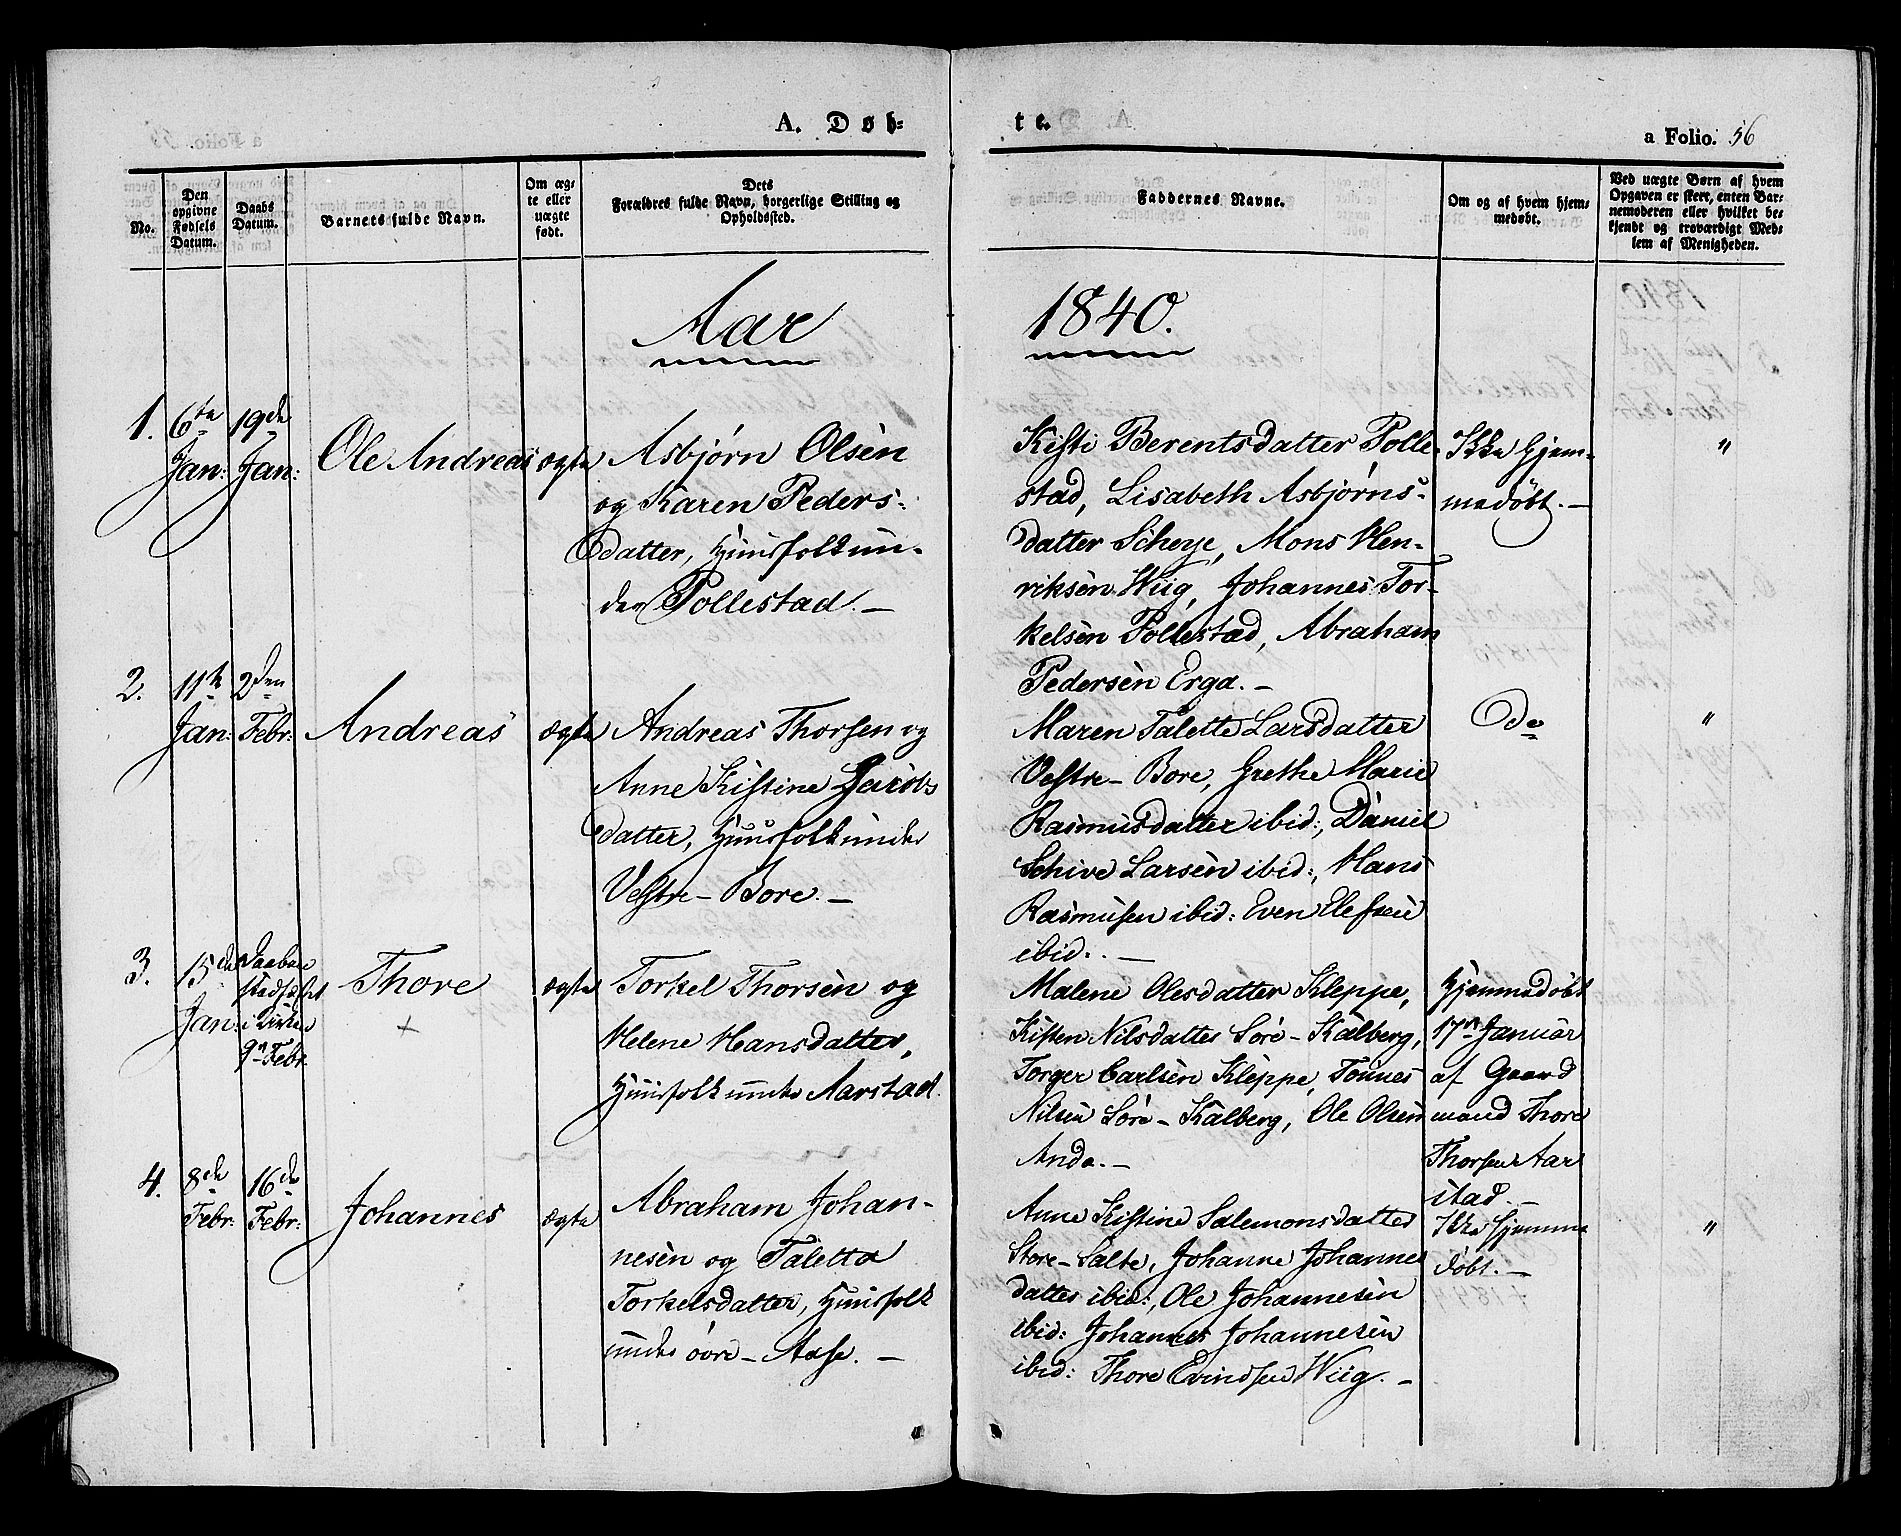 A. Døb-
te.
a Folio. 56
No.
Den
opgivne
Fødsels
Datum.
Daabs
Datum.
Barnets fulde Navn.
Om æg-
te eller
uægte
født.
Dets
Forældres fulde Navn, borgerlige Stilling og
Opholdssted.
Faddernes Navne.
Om og af hvem hjem-
medøbt.
Ved uægte Børn af hvem
Opgaven er skeet, enten Bar-
nemoderen eller hvilket be-
kjendt og troværdigt Med-
lem af Menigheden.
Aar
1840.
1.
6te
Jan:
19de
Jan:
Ole Andreas
ægte
Asbjørn Olsèn
og Karen Peders-
datter, Huusfolk un-
der Pollestad. —
Kisti Berentsdatter Polle-
stad, Lisabeth Asbjørns-
datter Scherje, Mons Hen-
riksèn Wiig, Johannes Tor-
kelsèn Pollestad, Abraham
Pedersèn Erga. —
Ikke hjem-
medøbt. —
"
2.
11te
Jan:
2den
Febr:
Andreas
ægte
Andreas Thorsen og
Anne Kistine Jacobs
datter, Huusfolk under
Vestre - Bore. —
Maren Talette Larsdatter
Vestre - Bore, Grethe Marie
Rasmusdatter ibid:, Daniel
Schive Larsèn ibid:, Hans
Rasmusen ibid: Even Elefsen
ibid. —
Do
"
3.
15de
Jan:
Daaben
stadfæstet
i Kirken
9n Febr.
Thore
+
ægte
Torkel Thorsèn og
Helene Hansdatter,
Huusfolk under Aarstad.
Malene Olesdatter Kleppe,
Kisten Nilsdatter Sôre - Kalberg,
Torger Carlsèn Kleppe, Tönnes
Nilsen Sôre - Kalberg, Ole Olsen
Anda. —
Hjemmedøbt
17n Januar
af Gaard
mand Thore
Thorsen Aar
stad. —
4.
8de
Febr:
16de
Febr:
Johannes
ægte
Abraham Johan-
nesèn og Taletta
Torkelsdatter, Huusfolk
under övre - Aase. —
Anne Kistine Salemonsdatter
Store - Salte, Johanne Johannes
datter ibid:, Ole Johannesèn
ibid: Johannes Johannesèn
ibid: Thore Evindsen Wiig. —
Ikke hjemme
døbt. —
"